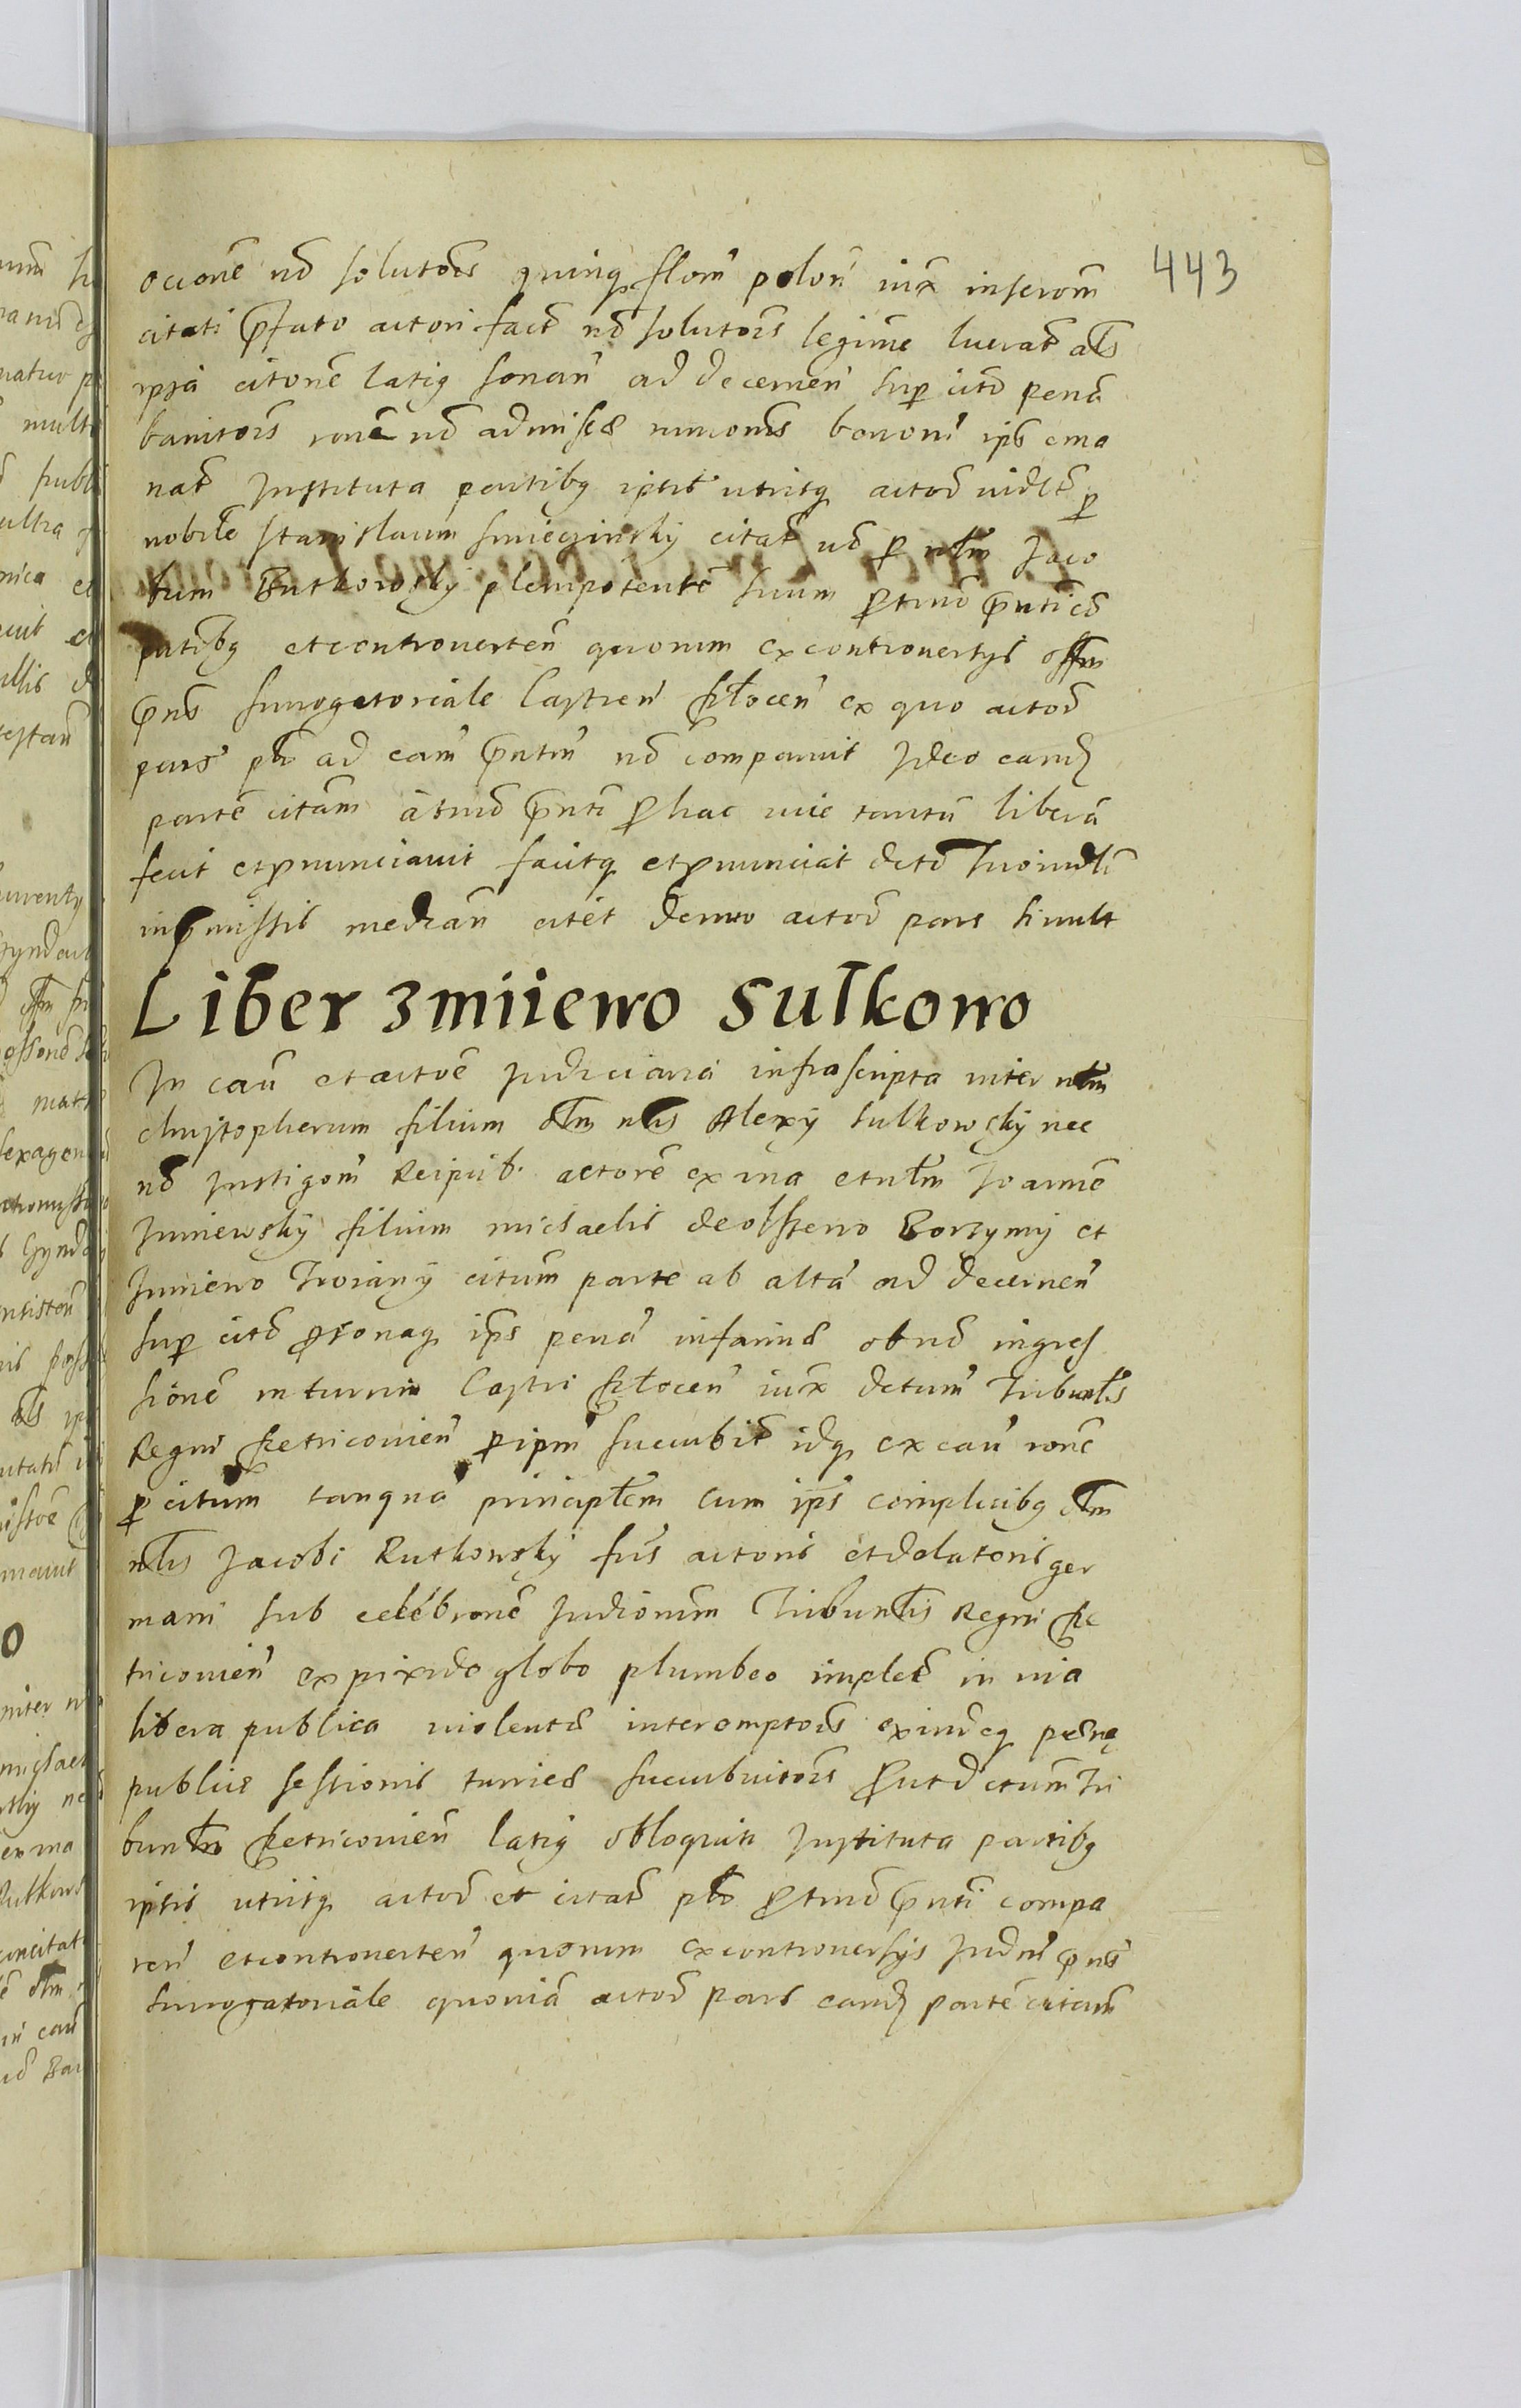 443
ocionē nō solutōis quinq florn̄ polon̄ iux̄ inscrom̄
citati p̄fato actori fact̄ nō solutōis legime lucrat̄ als
ipsā citonē latiq sonan̄ ad decernen̄ sup citō penā
banitōis ronē nō admissæ numonis bonom̄ ips̄ ema
nat̄ Instituta partibq ipsis utrisq actorē videlt̄ p
nobile Stanislaum citat̄ vō p nlm Jaco
bum Rutkowsky plenipotentē suum p̄ tmō p̄nti cō
putibq et controverten̄ quorum ex controversys offm
p̄ns surrogatoriale Castren̄ Plocen̄ ex quo actorē
pars ad cam̄ p̄ntm̄ nō comparuit Ideo eand
partē citām ā tmō p̄nti p hac vice tantū liberā
fecit et pnunciavit facitq et pnunciat
in p̄missis median̄ citet denuo actorē pars si vult
Liber zmiiewo sulkowo
In cau et actōē Judiciariā infrascripta inter nlm
christopherum filium olm nlis Alexy sulkowsky nec
nō Instigom̄ Reipub. actorē ex una et nlm Joannē
zmiewsky filium michaelis de olszewo Borzymy et
zmiewo Troiany citum parte ab altā ad decernen̄
sup citō psonaq ips̄ penā infamiæ ob nō ingres
sionē in turrim Castri Plocen̄ iux̄ dctum̄ Tribunlis
Regni Petricovien̄ p ipm̄ succubit̄ idq ex cau ronē
p citum tanquā principlem cum ips̄ complicibq olm
nlis Jacobi Rutkowsky fris actoris et delatoris ger
mani sub celebronē Judiorum Tribunlis Regni Pe
tricovien̄ ex pixide globo plumbeo implet̄ in via
libera publica violentæ interemptōis exindeq penę
publicæ sessionis turrieæ succubuitōis p̄ut dctum Tri
bunlis Petricovien̄ latiq obloquit̄ Instituta partibq
ipsis utrisq actorē et citat̄ p̄ tmō p̄nti compa
ren̄ et controverten̄ quorum ex controversys Judm̄ p̄ns
surrogatoriale quoniā actorē pars eand partē citām